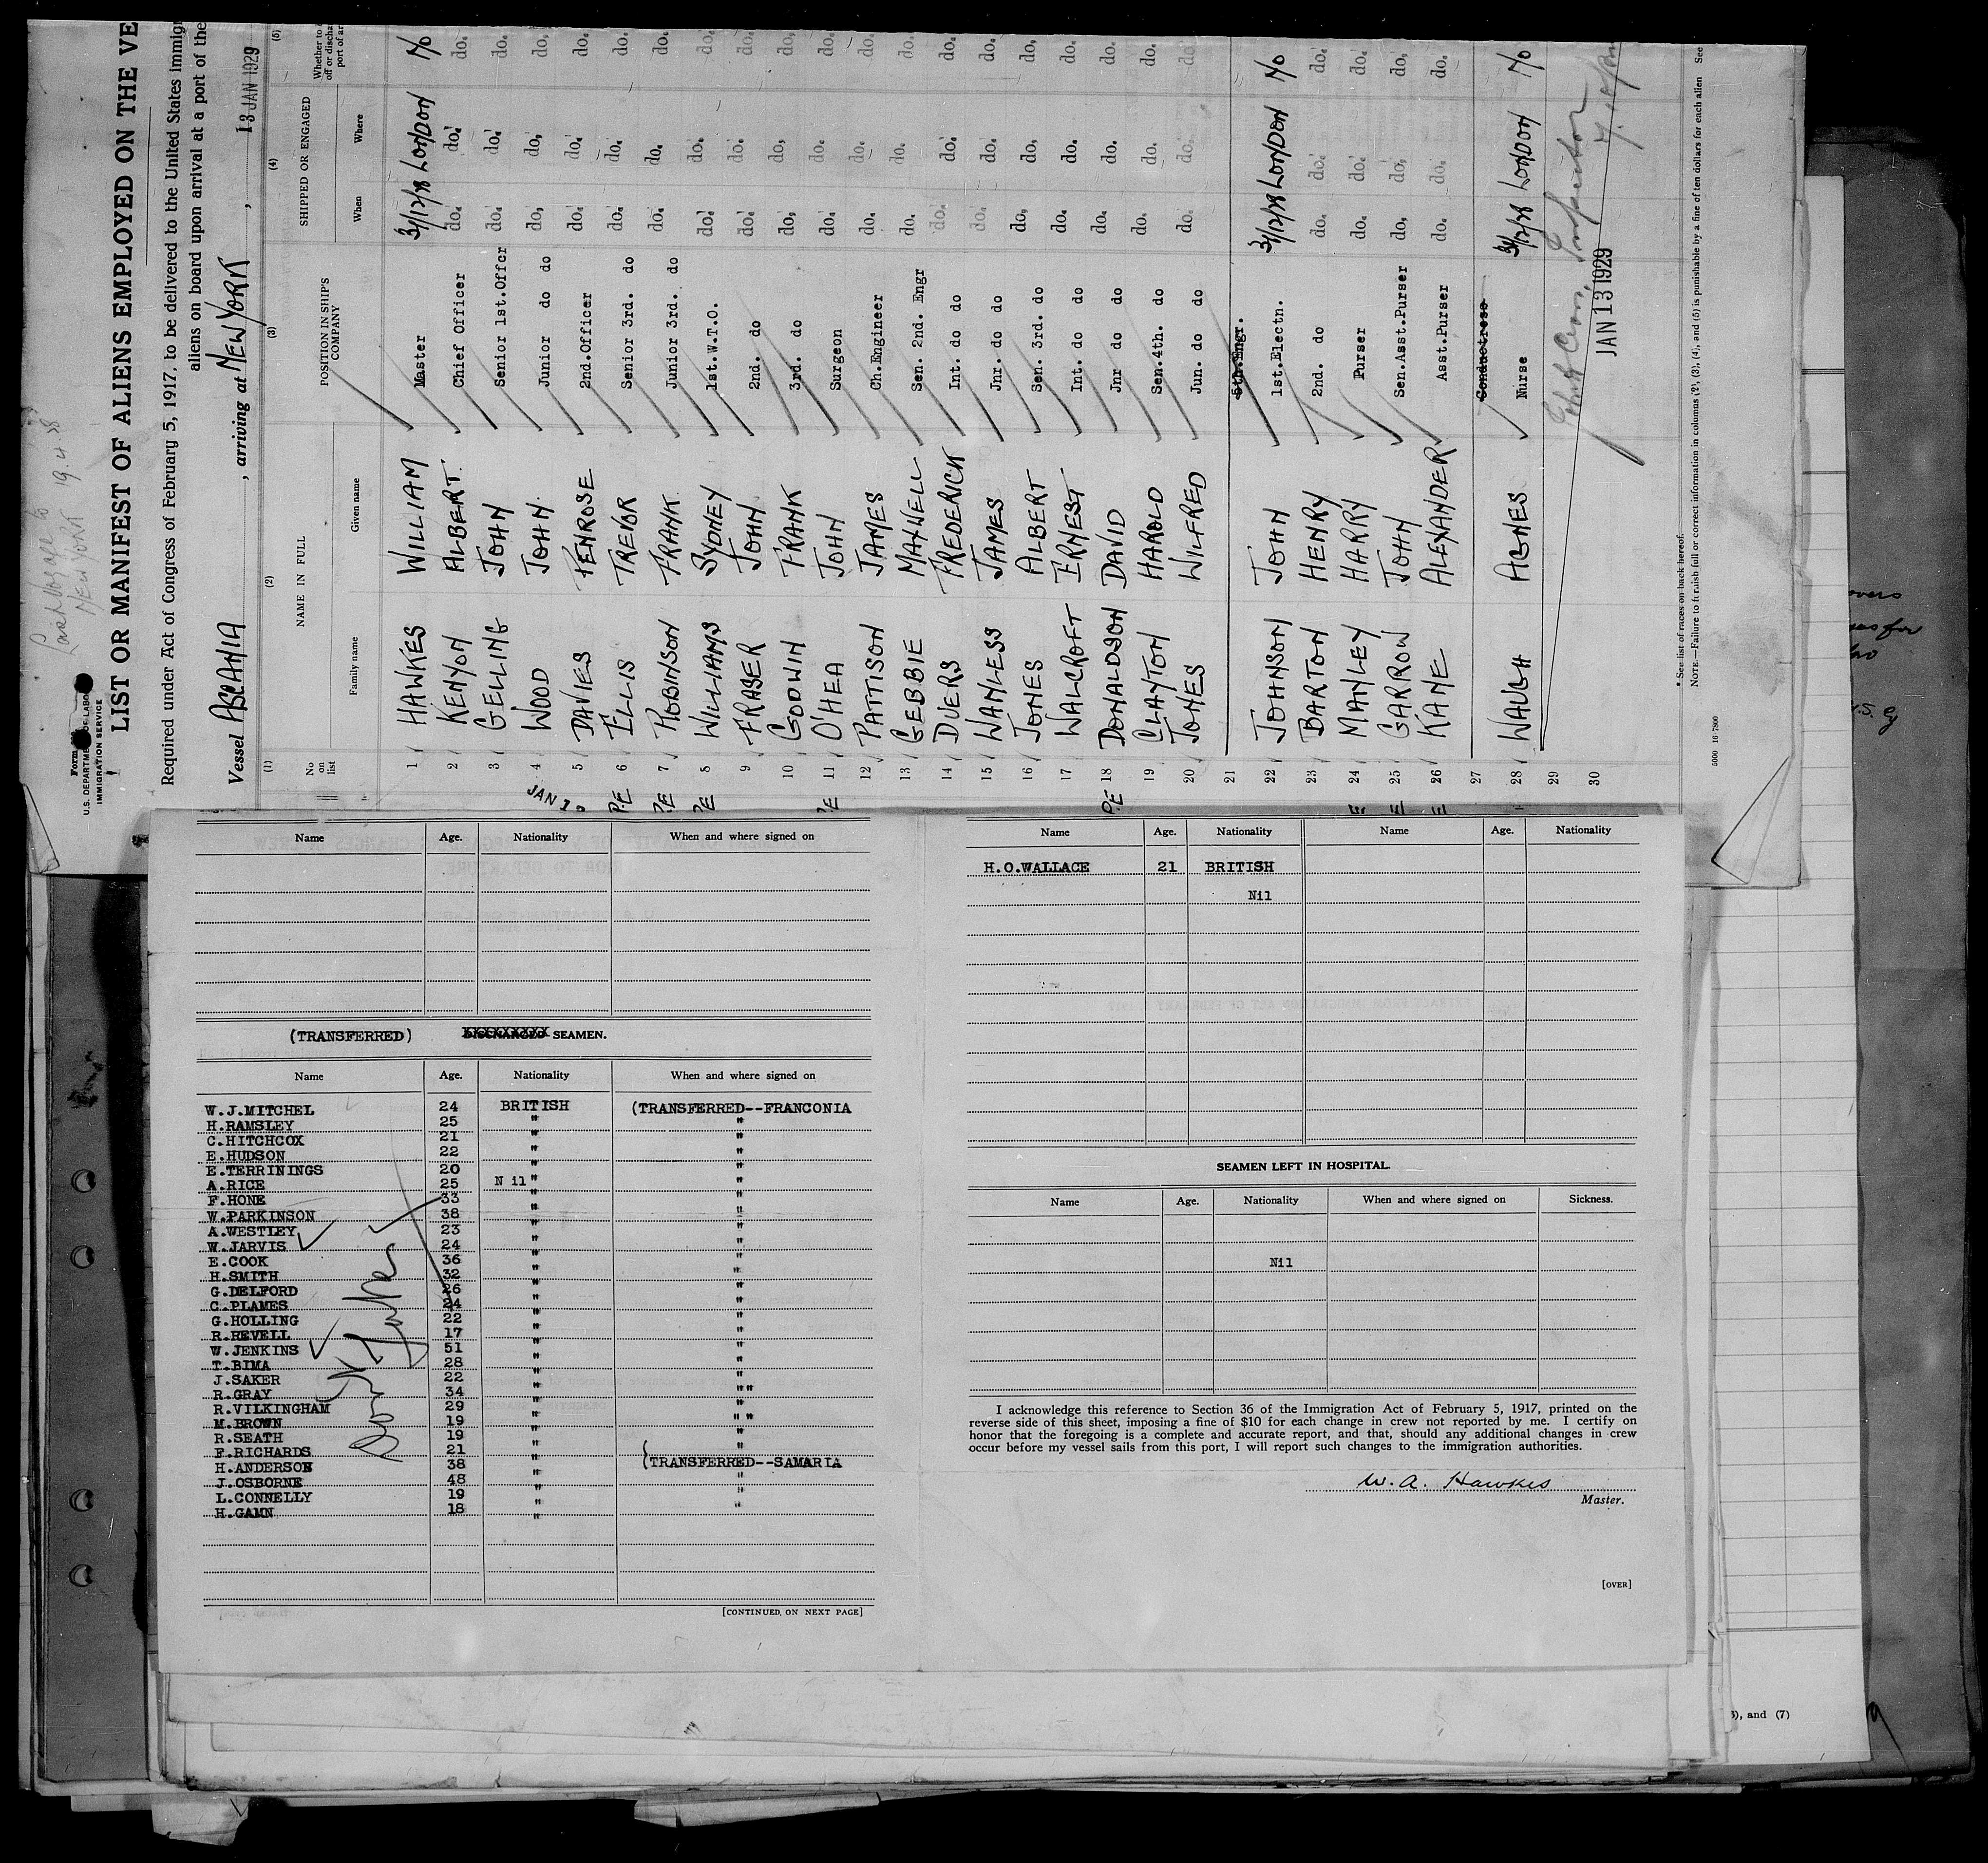 Last voyage to
New York 19.4.28
Form
U.S. DEPARTMENT OF LABOR
IMMIGRATION SERVICE
LIST OR MANIFEST OF ALIENS EMPLOYED ON THE VE
Required under Act of Congress of February 5, 1917, to be delivered to the United States immigr
aliens on board upon arrival at a port of the
Vessel ASCANIA, arriving at NEW YORK, 13 JAN 1929
(1) (2) (3) (4) (5)
No on list NAME IN FULL POSITION IN SHIP'S COMPANY SHIPPED OR ENGAGED Whether to off or discha port of ar
Family name Given name When Where
1 HAWKES WILLIAM Master 31/12/28 LONDON No
2 KENYON ALBERT Chief Officer do. do. do.
3 GELLING JOHN Senior 1st.Offcr do. do. do.
4 WOOD JOHN Junior do do do, do, do,
5 DAVIES PENROSE 2nd.Officer do. do. do.
6 ELLIS TREVOR Senior 3rd. do do. do. do.
7 ROBINSON FRANK Junior 3rd. do do. do. do.
8 WILLIAMS SYDNEY 1st.W.T.O. do. do. do.
9 FRASER JOHN 2nd. do do. do. do.
10 GODWIN FRANK 3rd. do do, do, do,
11 O'HEA JOHN Surgeon do. do. do.
12 PATTISON JAMES Ch.Engineer do. do. do.
13 GEBBIE MAXWELL Sen. 2nd. Engr do. do. do.
14 DUERS FREDERICK Int. do do do. do. do.
15 WANLESS JAMES Jnr. do do do. do. do.
16 JONES ALBERT Sen. 3rd. do do, do, do,
17 WALCROFT ERNEST Int. do do do. do. do.
18 DONALDSON DAVID Jnr do do do. do. do.
19 CLAYTON HAROLD Sen.4th. do do. do. do.
20 JONES WILFRED Jun. do do do. do. do.
21 5th.Engr.
22 JOHNSON JOHN 1st.Electn. 31/12/28 LONDON No
23 BARTON HENRY 2nd. do do. do. do.
24 MANLEY HARRY Purser do. do. do.
25 GARROW JOHN Sen.Asst.Purser do, do, do,
26 KANE ALEXANDER Asst.Purser do. do. do.
27 Conductress
28 WAUGH AGNES Nurse 31/12/28 LONDON No
29
30
JAN 13 1929
* See list of races on back hereof.
NOTE.—Failure to furnish full or correct information in columns (2), (3), (4), and (5) is punishable by a fine of ten dollars for each alien See
Name Age. Nationality When and where signed on
(TRANSFERRED) DISCHARGED SEAMEN.
Name Age. Nationality When and where signed on
W.J.MITCHEL 24 BRITISH (TRANSFERRED--FRANCONIA
H.RAMSLEY 25 " "
C.HITCHCOX 21 " "
E.HUDSON 22 " "
E.TERRININGS 20 " "
A.RICE 25 Nil " "
F.HONE 33 " "
W.PARKINSON 38 " "
A.WESTLEY 23 " "
W.JARVIS 24 " "
E.COOK 36 " "
H.SMITH 32 " "
G.DELFORD 26 " "
C.PLAMES 24 " "
G.HOLLING 22 " "
R.REVELL 17 " "
W.JENKINS 51 " "
T.BIMA 28 " "
J.SAKER 22 " "
R.GRAY 34 " ""
R.VILKINGHAM 29 " "
M.BROWN 19 " ""
R.SEATH 19 " "
F.RICHARDS 21 " "
H.ANDERSON 38 " (TRANSFERRED--SAMARIA
J.OSBORNE 48 " "
L.CONNELLY 19 " "
H.GAMN 18 " "
[CONTINUED, ON NEXT PAGE]
Name Age. Nationality Name Age. Nationality
H.O.WALLACE 21 BRITISH
Nil
SEAMEN LEFT IN HOSPITAL.
Name Age. Nationality When and where signed on Sickness.
Nil
I acknowledge this reference to Section 36 of the Immigration Act of February 5, 1917, printed on the
reverse side of this sheet, imposing a fine of $10 for each change in crew not reported by me. I certify on
honor that the foregoing is a complete and accurate report, and that, should any additional changes in crew
occur before my vessel sails from this port, I will report such changes to the immigration authorities.
W. A. Hawkes
Master.
[OVER]
), and (7)